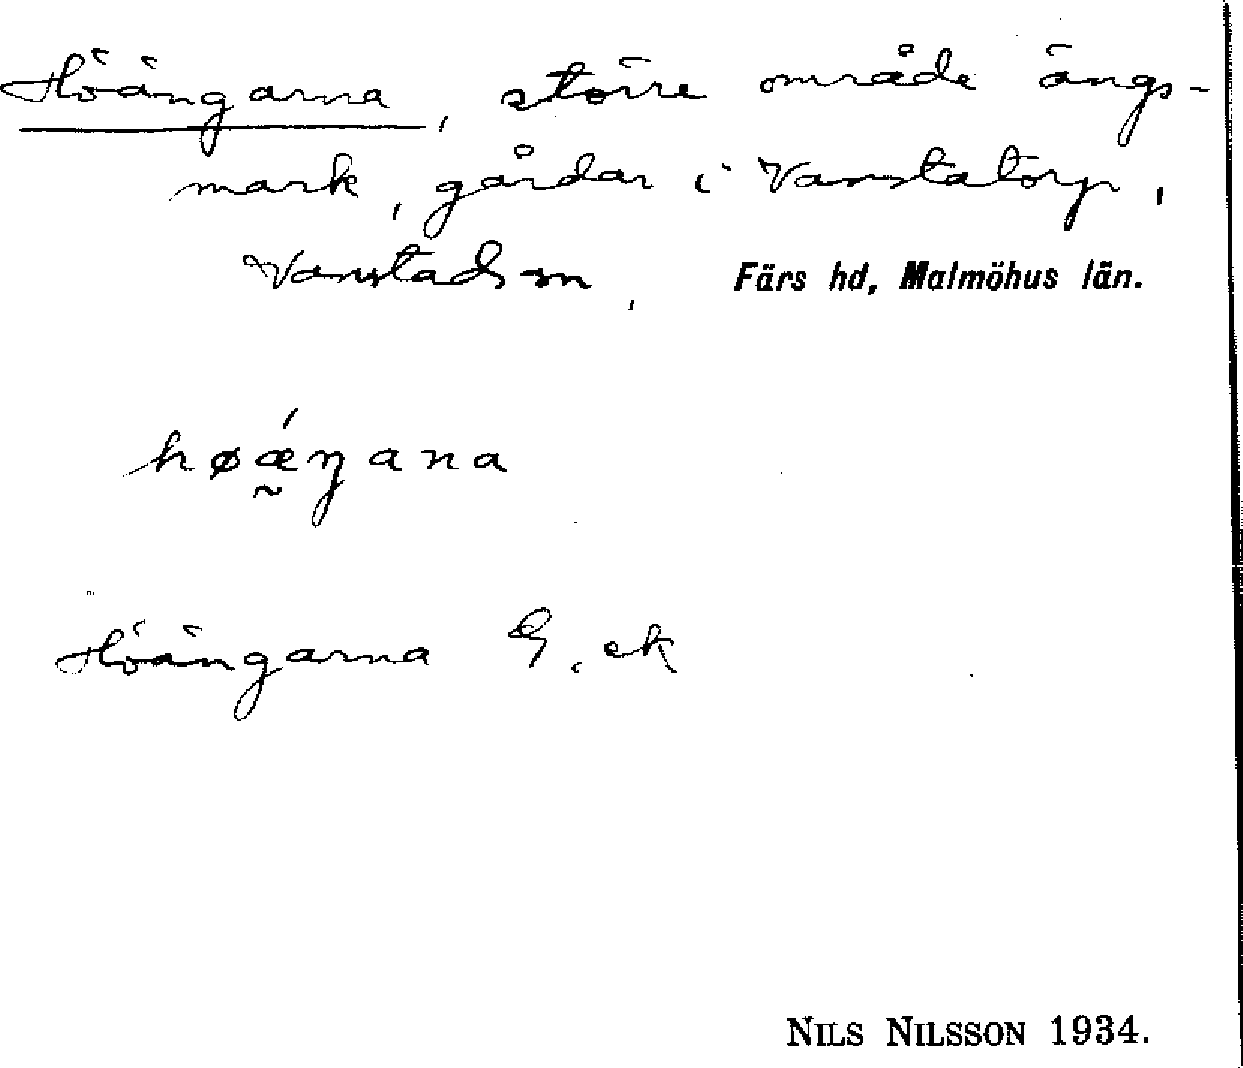 Höängarna, större område ängs-
mark, gårdar i Vanstatorp,
Vanstads sn, Färs hd, Malmöhus län.
høǽ̰ŋana
Höängarna G. ek
NILS NILSSON 1934.